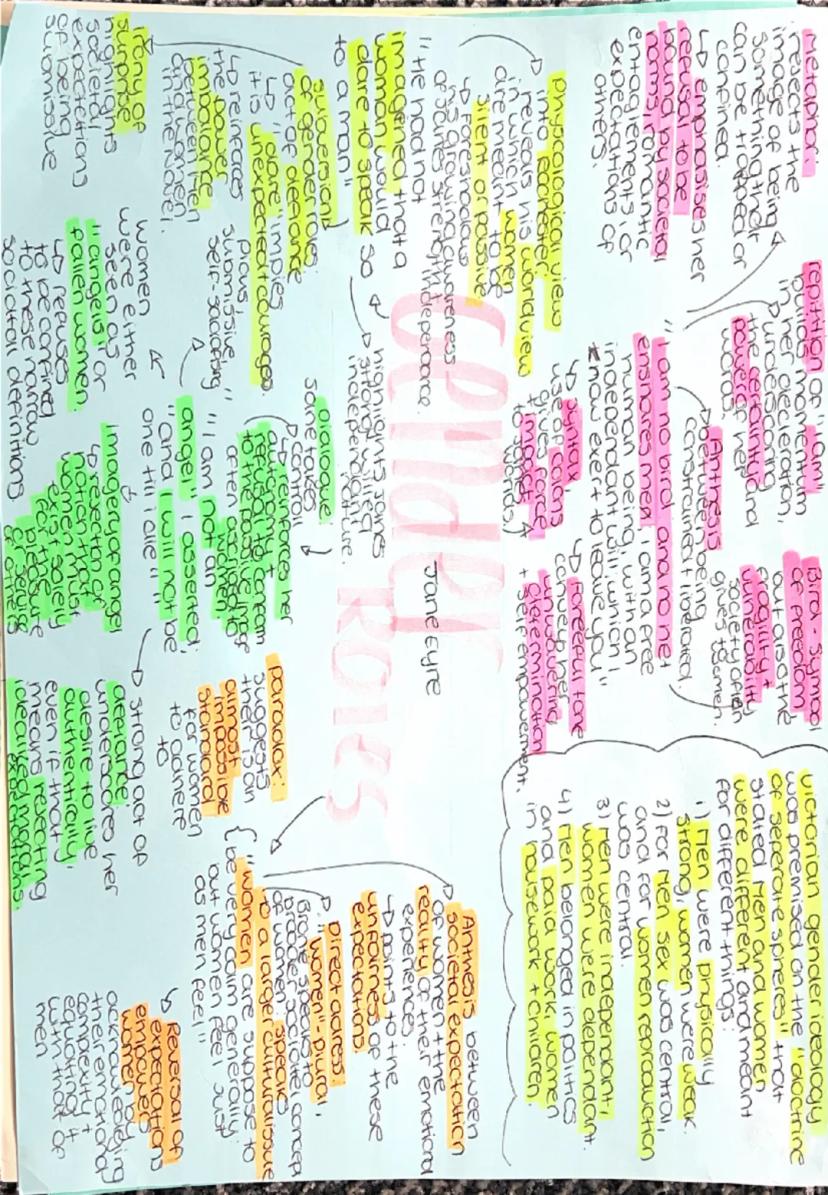 metaphor:
rejects the
image of being
something that
can be trapped or
confined.
↳ emphasises her
refusal to be
bound by societal
norms, romantic
entaglements or
expectations of
others.
repitition of "I am"
builds momentum
in her decleration,
underscoring
the certainty and
power of her
words.
Bird - symbol
of freedom
but also the
fragility +
vulnerability
society often
gives to women.
Anthesis
between being
constrained + liberated
"I am no bird and no net
ensnares me; I am a free
human being, with an
independant will, which I
now exert to leave you"
↳ syntax,
use of colons
gives force
+ impact
to words
↳ Forceful tone
conveys her
unwavering
determination
+ self empowerment.
Victorian gender ideology
was premised on the "doctrine
of seperate spheres" that
stated men and women
were different and meant
for different things:
1) Men were physically
strong, women were weak.
2) For men sex was central,
and for women reproduction
was central.
3) Men were independant,
women were dependant.
4) Men belonged in politics
and paid work, women
in housework + children.
physiological view
into Rochester,
reveals his worldview
in which women
are meant to be
silent or passive
"He had not
imagened that a
woman would
dare to speak so
to a man"
highlights Janes
strong willed
independant
nature.
Gender
Roles
Jane Eyre
subversion
of gender roles:
act of defiance
↳ "dare" implies
it is unexpected + courageous.
↳ reveals
the power
imbalance
between men
and women
in the novel.
irony of
surprise
highlights
societal
expectations
of being
submissive
pious,
submissive,
self-sacrificing
women
were either
seen as
"angels" or
fallen women.
↳ refuses
to be confined
to these narrow
societal definitions
dialogue:
some takes
control
↳ reinforces her
autonomy +
refusal to conform
to the passive image
often assigned to
women
"I am not an
angel" I asserted;
"and I will not be
one till I die"
Imagery of angel
↳ rejection of
notion that
women must
exist solely
for the
pleasure
or serving
of others
↳ strong act of
defiance
underscores her
desire to live
authentically,
even if that
means rejecting
idealised
paradox:
suggests
there is an
almost
impossible
standard
for women
to adhere
to
"women are suppose to
be very calm generally:
but women feel just
as men feel"
Anthesis between
societal expectation
of women + the
reality of their emotional
experiences
↳ points to the
unfairness of these
expectations.
Direct adress:
"women" - plural,
Bronte speaks to
broader concept
of women. speaks
to a larger cultural issue
↳ Reversal of
expectations
empower
women,
acknowledging
their emotional
complexity +
equating it
with that of
men